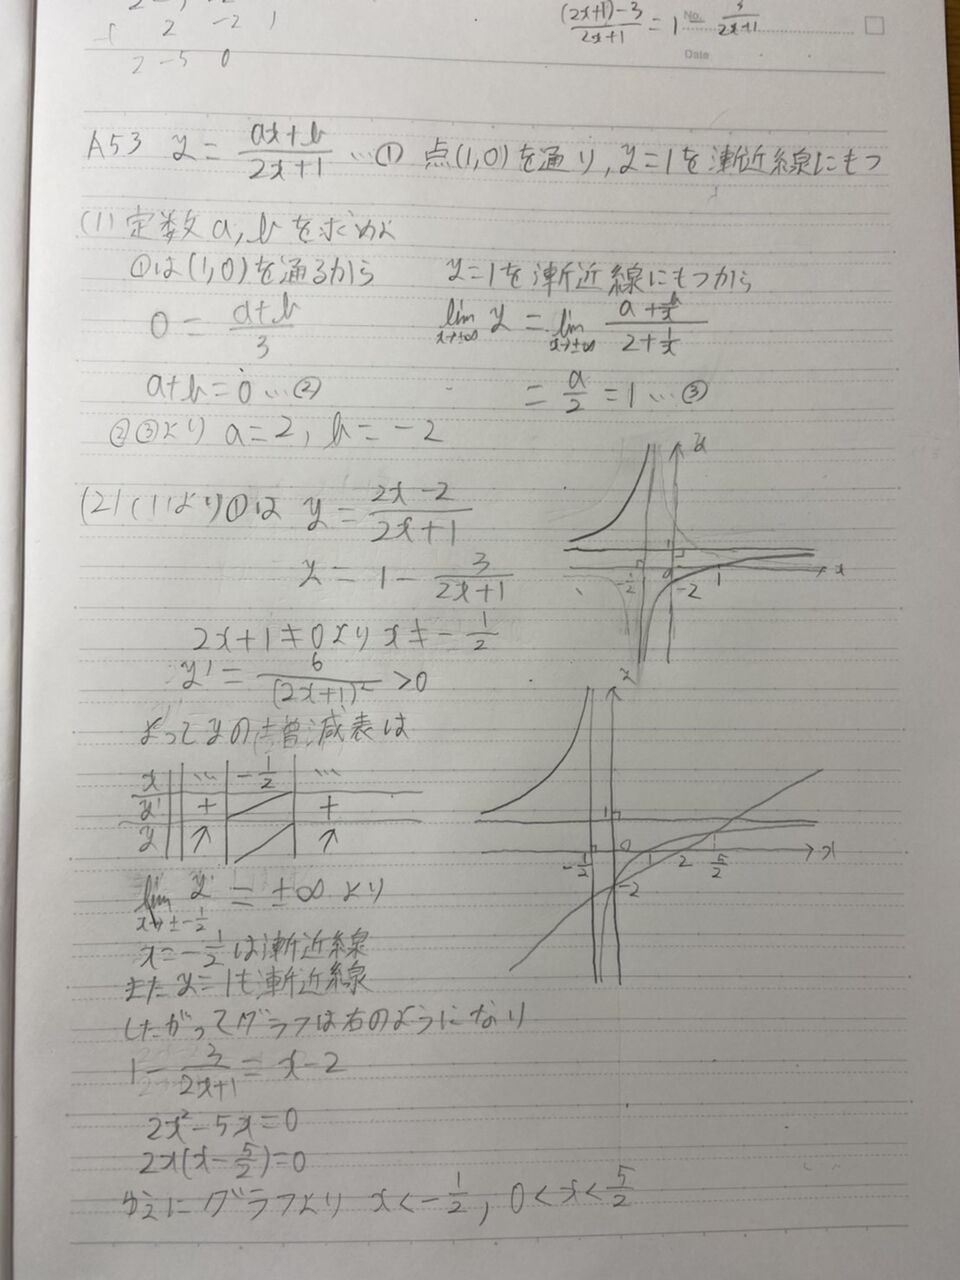 2 -2 1
2 -5 0
(2x+1)-3/2x+1 = 1 - 3/2x+1
No.
Date
A53 y = ax+b/2x+1 …① 点(1,0)を通り, y=1を漸近線にもつ
(1) 定数a, bを求めよ
①は(1,0)を通るから
0 = a+b/3
a+b=0 …②
y=1を漸近線にもつから
lim x→±∞ y = lim x→±∞ a+b/x / 2+1/x
= a/2 = 1 …③
②③より a=2, b=-2
(2) (1)より①は y = 2x-2/2x+1
y = 1 - 3/2x+1
2x+1≠0より x≠-1/2
y' = 6/(2x+1)² >0
よってyの増減表は
x … -1/2 …
y' + +
y ↗ ↗
lim x→±-1/2 y = ±∞ より
x=-1/2は漸近線
また y=1も漸近線
したがってグラフは右のようになり
1 - 3/2x+1 = x-2
2x²-5x=0
2x(x-5/2)=0
ゆえにグラフより x<-1/2, 0<x<5/2
y
1
-1/2 0 1 x
-2
y
1
-1/2 0 1 2 5/2 x
-2